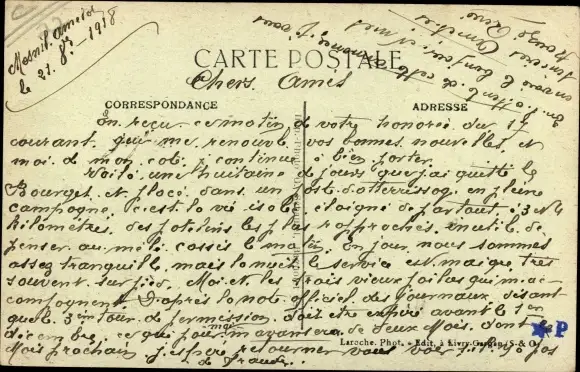 Mesnil Amelot
le 21. 8bre 1918
CARTE POSTALE
Chers Amis
CORRESPONDANCE
ADRESSE
En reçu ce matin de votre honorée du 17
courant, qui me renouvele vos bonnes nouvelles, et
moi de mon coté, j continue à bien porter.
Voila une huitaine de jours que j'ai quitté le
Bourget, et placé dans un poste d'atterrissage en pleine
campagne, c'est la vie isolé éloigné de partout, 3 à 4
kilometres des patelins les plus rapprochés, inutile de
penser au mêlé cassis le matin. En jour nous sommes
assez tranquille, mais la nuit le service est maigre, très
souvent sur pied, Moi et les trois vieux poilus qui m'ac-
compagnent. D'après la note officiel des journaux disant
que le 3em tour de permission doit etre expiré avant le 1er
décembre, ce qui pour moi m'avancera de deux Mois, donc le
Mois prochain j'espère retourner vous voir si il y a pas
de fraude.
Laroche. Phot. - Edit. à Livry-Gargan (S.-&-O.)
P